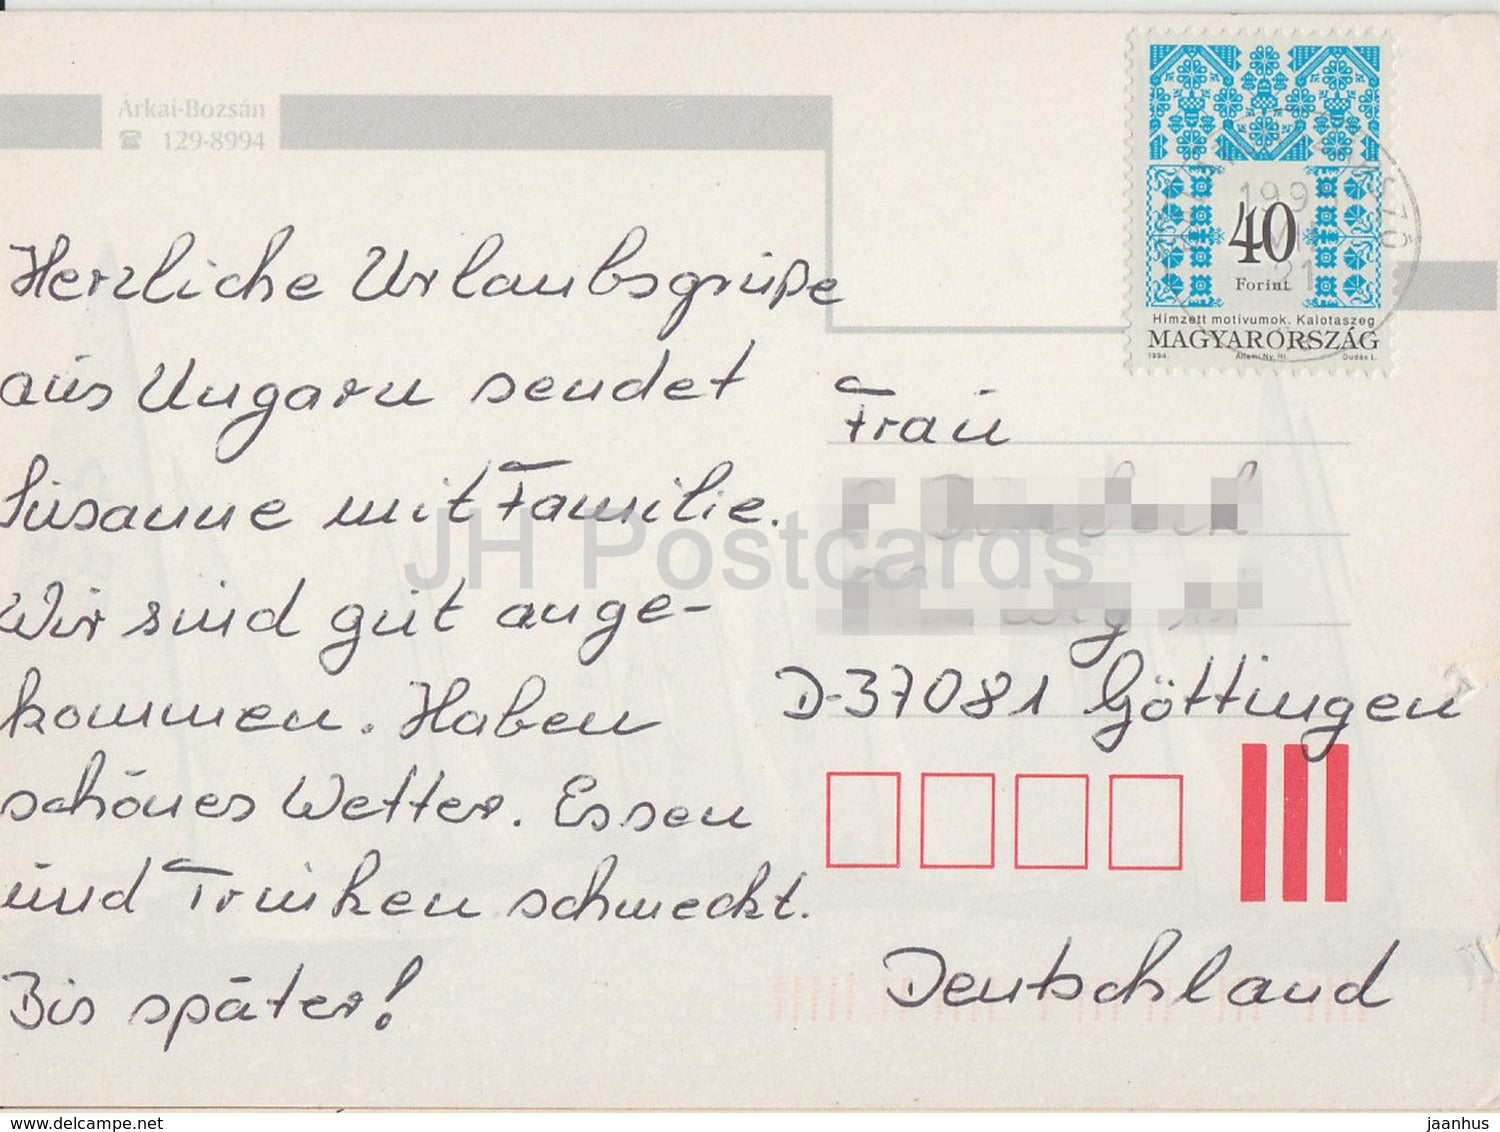 Árkai-Bozsán
☎ 129-8994
Herzliche Urlaubsgrüße
aus Ungarn sendet
Susanne mit Familie.
Wir sind gut ange-
kommen. Haben
schönes Wetter. Essen
und Trinken schmeckt.
Bis später!
199
21
40
Forint
Hímzett motívumok. Kalotaszeg
MAGYARORSZÁG
1994. Állami Ny. Rt. Dudás L.
Frau
D-37081 Göttingen
Deutschland
JH Postcards
delcampe.net
jaanhus